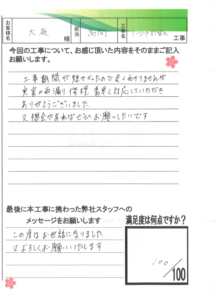 お客様名 大庭 様 担当 高岡 工事名 工事
今回の工事について、お感じ頂いた内容をそのままご記入
お願いします。
工事期間が短かったので良くわかりませんが
早急の雨漏り修理 素早く対応していただき
ありがとうございました
又機会があればぜひお願いしたいです
最後に本工事に携わった弊社スタッフへの
メッセージをお願いします
この度はお世話になりました
又よろしくお願いいたします
満足度は何点ですか?
100
/100